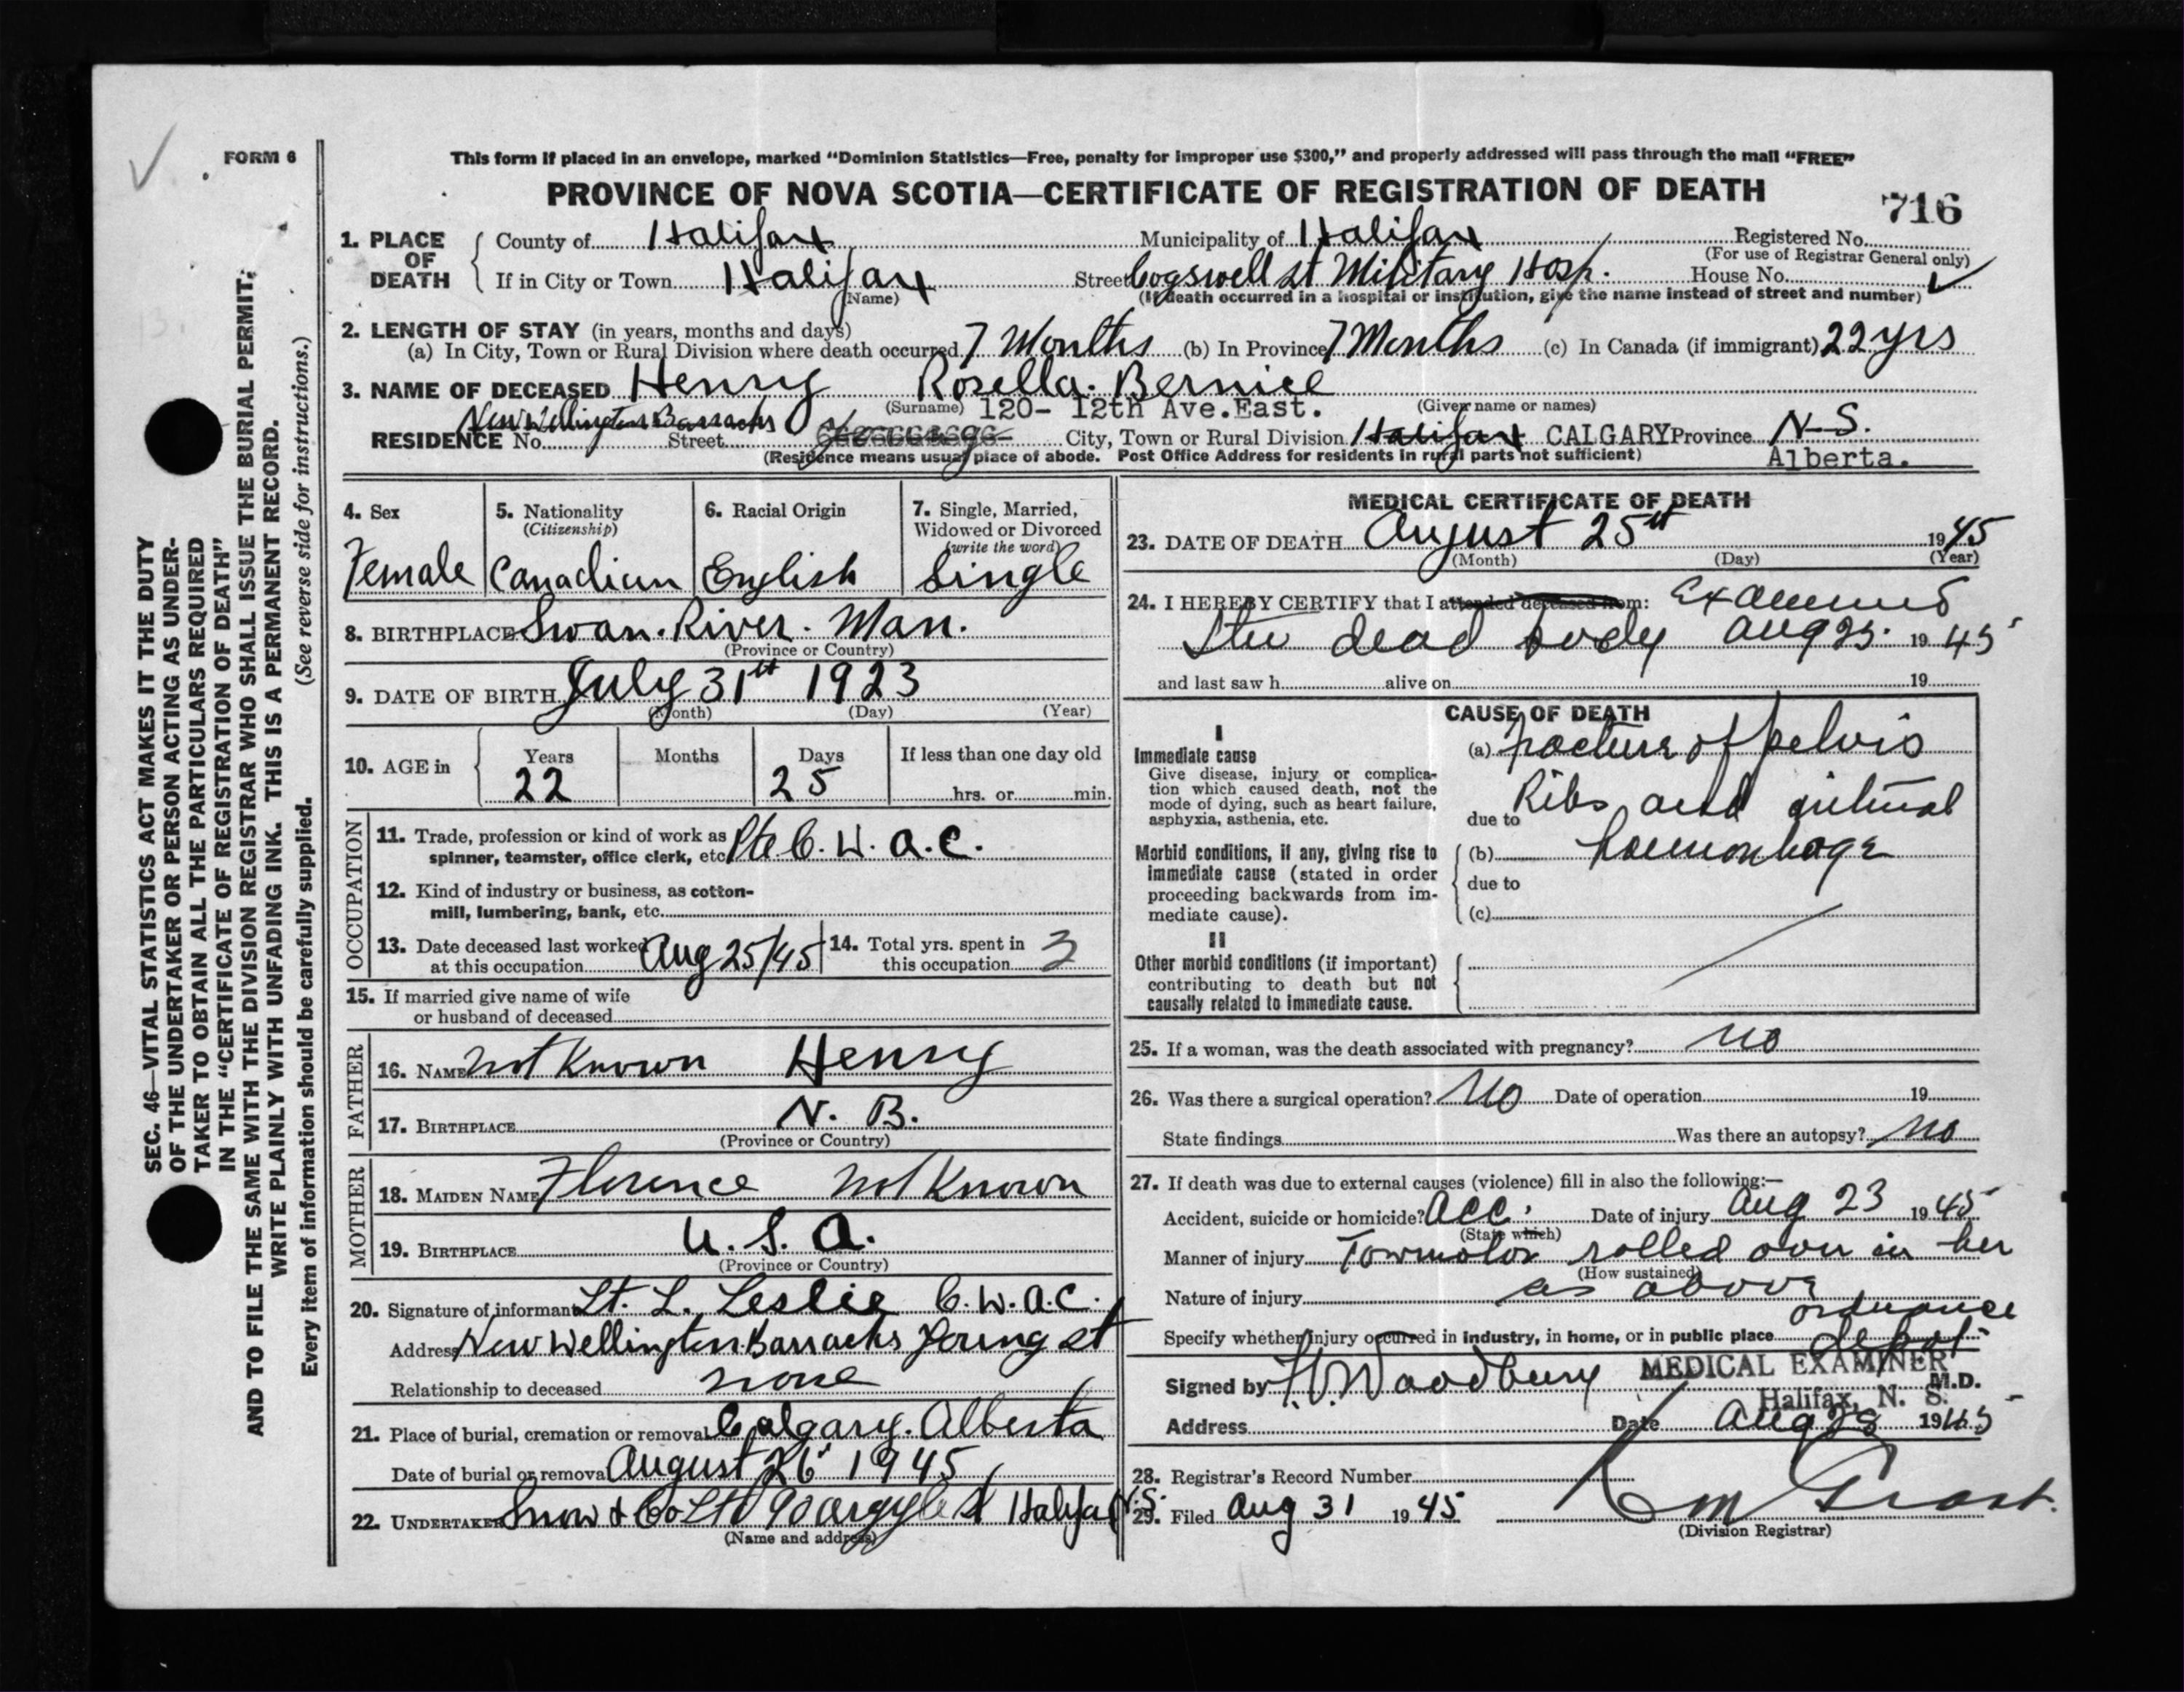 FORM 6
This form if placed in an envelope, marked "Dominion Statistics—Free, penalty for improper use $300," and properly addressed will pass through the mail "FREE"
PROVINCE OF NOVA SCOTIA—CERTIFICATE OF REGISTRATION OF DEATH
716
1. PLACE OF DEATH
County of Halifax Municipality of Halifax Registered No.
(For use of Registrar General only)
If in City or Town Halifax Street Cogswell St Military Hosp. House No.
(Name) (If death occurred in a hospital or institution, give the name instead of street and number)
2. LENGTH OF STAY (in years, months and days)
(a) In City, Town or Rural Division where death occurred 7 Months (b) In Province 7 Months (c) In Canada (if immigrant) 22 yrs
3. NAME OF DECEASED Henry Rosella. Bernice
(Surname) 120- 12th Ave.East. (Given name or names)
New Wellington Barracks
RESIDENCE No. Street City, Town or Rural Division Halifax CALGARY Province N-S.
(Residence means usual place of abode. Post Office Address for residents in rural parts not sufficient) Alberta.
4. Sex
Female
5. Nationality
(Citizenship)
Canadian
6. Racial Origin
English
7. Single, Married,
Widowed or Divorced
(write the word)
Single
8. BIRTHPLACE Swan. River. Man.
(Province or Country)
9. DATE OF BIRTH July 31st 1923
(Month) (Day) (Year)
10. AGE in
Years Months Days If less than one day old
22 25 hrs. or min.
OCCUPATION
11. Trade, profession or kind of work as
spinner, teamster, office clerk, etc. Pte C. W. A. C.
12. Kind of industry or business, as cotton-
mill, lumbering, bank, etc.
13. Date deceased last worked
at this occupation Aug 25/45
14. Total yrs. spent in
this occupation 3
15. If married give name of wife
or husband of deceased
FATHER
16. NAME Not Known Henry
17. BIRTHPLACE N. B.
(Province or Country)
MOTHER
18. MAIDEN NAME Florence Not Known
19. BIRTHPLACE U. S. A.
(Province or Country)
20. Signature of informant Lt. L. Leslie C.W.A.C.
Address New Wellington Barracks Young St
Relationship to deceased none
21. Place of burial, cremation or removal Calgary. Alberta
Date of burial or removal August 26 1945
22. UNDERTAKER Snow & Co Ltd 90 Argyle St Halifax N.S.
(Name and address)
MEDICAL CERTIFICATE OF DEATH
23. DATE OF DEATH August 25th 1945
(Month) (Day) (Year)
24. I HEREBY CERTIFY that I attended deceased from: Examined
the dead body Aug 25. 1945
and last saw h alive on 19
CAUSE OF DEATH
I
Immediate cause
Give disease, injury or complica-
tion which caused death, not the
mode of dying, such as heart failure,
asphyxia, asthenia, etc.
(a) Fracture of pelvis
due to Ribs and internal
Morbid conditions, if any, giving rise to
immediate cause (stated in order
proceeding backwards from im-
mediate cause).
(b) haemorrhage
due to
(c)
II
Other morbid conditions (if important)
contributing to death but not
causally related to immediate cause.
25. If a woman, was the death associated with pregnancy? No
26. Was there a surgical operation? No Date of operation 19
State findings Was there an autopsy? No
27. If death was due to external causes (violence) fill in also the following:—
Accident, suicide or homicide? Acc. Date of injury Aug 23 1945
(State which)
Manner of injury Towmotor rolled over in her
(How sustained)
Nature of injury as above
ordnance
Specify whether injury occurred in industry, in home, or in public place depot
Signed by Woodbury MEDICAL EXAMINER M.D.
Halifax, N. S.
Address Date Aug 28 1945
28. Registrar's Record Number
29. Filed Aug 31 1945
(Division Registrar)
SEC. 46—VITAL STATISTICS ACT MAKES IT THE DUTY
OF THE UNDERTAKER OR PERSON ACTING AS UNDER-
TAKER TO OBTAIN ALL THE PARTICULARS REQUIRED
IN THE "CERTIFICATE OF REGISTRATION OF DEATH"
AND TO FILE THE SAME WITH THE DIVISION REGISTRAR WHO SHALL ISSUE THE BURIAL PERMIT.
WRITE PLAINLY WITH UNFADING INK. THIS IS A PERMANENT RECORD.
Every item of information should be carefully supplied. (See reverse side for instructions.)